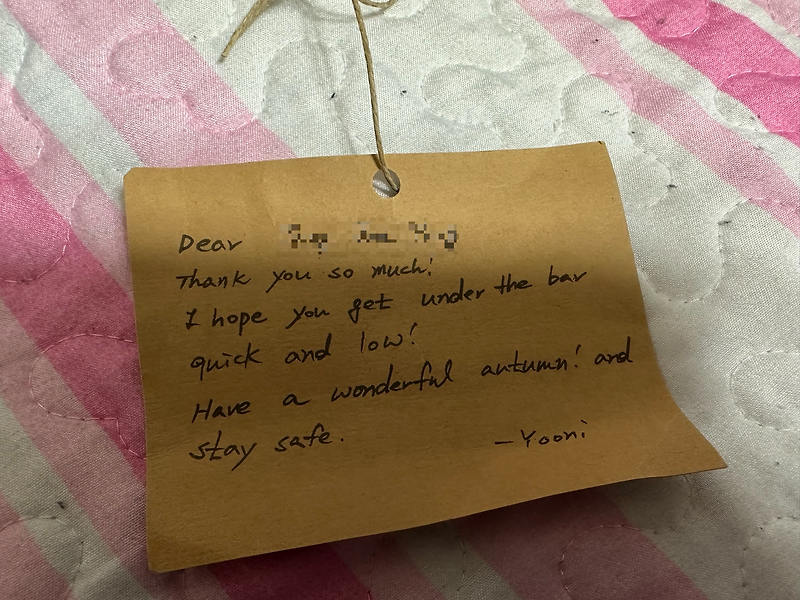 Dear
Thank you so much!
I hope you get under the bar
quick and low!
Have a wonderful autumn! and
stay safe.
-Yooni